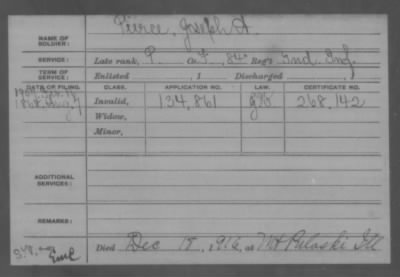 NAME OF SOLDIER: Pierce, Joseph A.
SERVICE: Late rank, P. Co. F, 84" Reg't Ind. Inf.
TERM OF SERVICE: Enlisted , 1 Discharged ,
DATE OF FILING. CLASS. APPLICATION NO. LAW. CERTIFICATE NO.
1868, Aug 7 Invalid, 134,861 268,142
Widow,
Minor,
ADDITIONAL SERVICES:
REMARKS:
Died Dec 18, 1916, at Mt Pulaski Ill